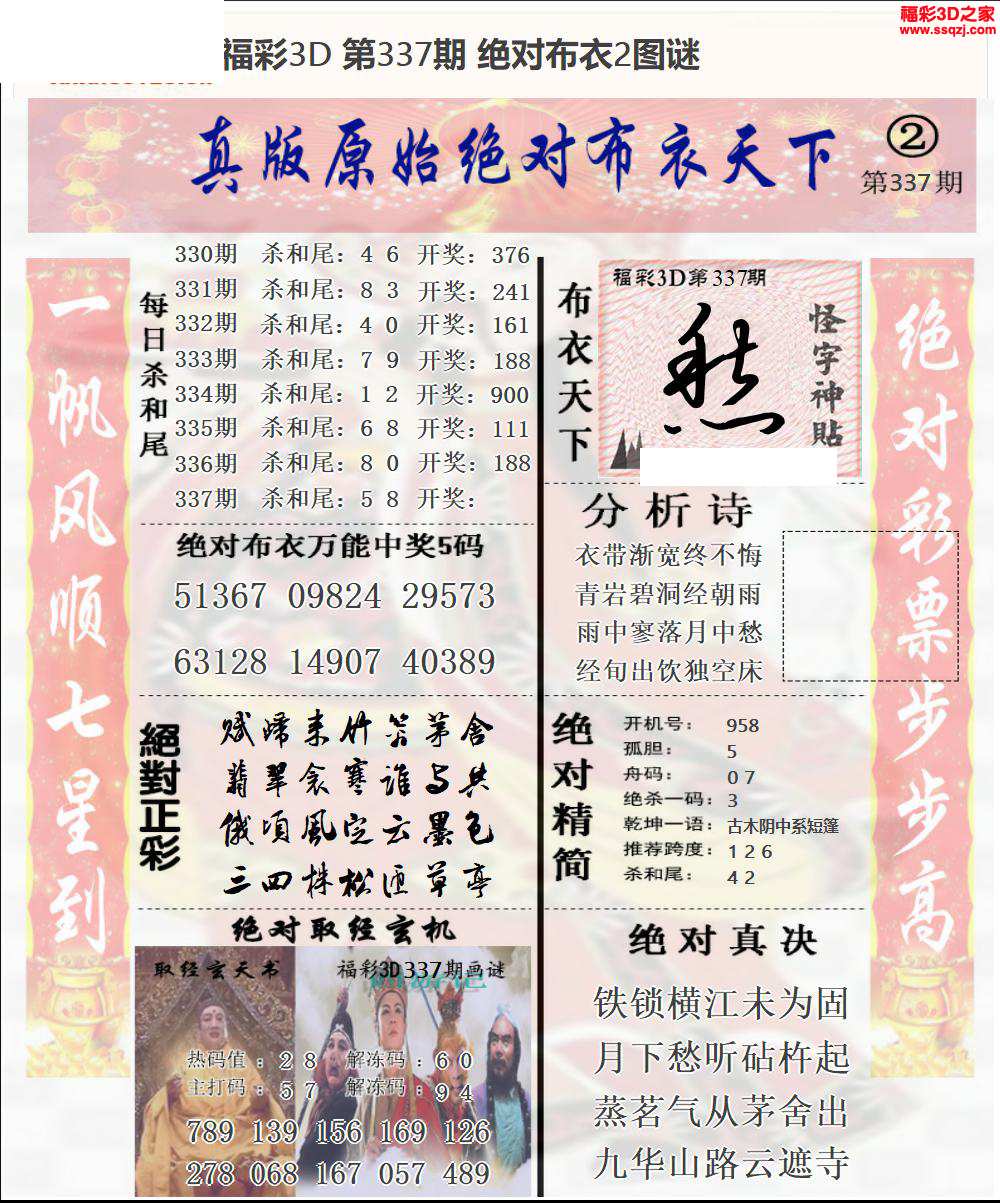 福彩3D之家
www.ssqzj.com
福彩3D 第337期 绝对布衣2图谜
真版原始绝对布衣天下
②
第337期
一帆风顺七星到
每日杀和尾
330期 杀和尾：4 6 开奖：376
331期 杀和尾：8 3 开奖：241
332期 杀和尾：4 0 开奖：161
333期 杀和尾：7 9 开奖：188
334期 杀和尾：1 2 开奖：900
335期 杀和尾：6 8 开奖：111
336期 杀和尾：8 0 开奖：188
337期 杀和尾：5 8 开奖：
绝对布衣万能中奖5码
51367 09824 29573
63128 14907 40389
絕對正彩
赋归来竹笞茅舍
翡翠衾寒谁与共
俄顷風定云墨色
三四株松匝草亭
绝对取经玄机
取经玄天书
福彩3D337期画谜
热码值：2 8 解冻码：6 0
主打码：5 7 解冻码：9 4
789 139 156 169 126
278 068 167 057 489
布衣天下
福彩3D第337期
怪字神貼
分析诗
衣带渐宽终不悔
青岩碧洞经朝雨
雨中寥落月中愁
经旬出饮独空床
绝对精简
开机号：958
孤胆：5
舟码：0 7
绝杀一码：3
乾坤一语：古木阴中系短篷
推荐跨度：1 2 6
杀和尾：4 2
绝对真决
铁锁横江未为固
月下愁听砧杵起
蒸茗气从茅舍出
九华山路云遮寺
绝对彩票步步高